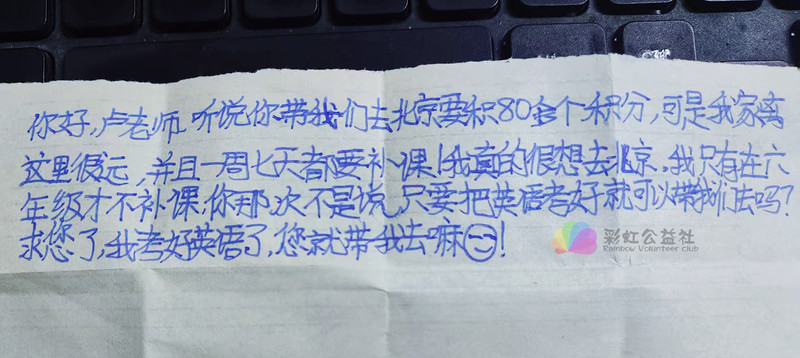 你好,卢老师 听说你带我们去北京要积80多个积分,可是我家离
这里很远,并且一周七天都要补课!我真的很想去北京,我只有在六
年级才不补课,你那次不是说,只要把英语考好就可以带我们去吗?
求您了,我考好英语了,您就带我去嘛!
彩虹公益社
Rainbow Volunteer club